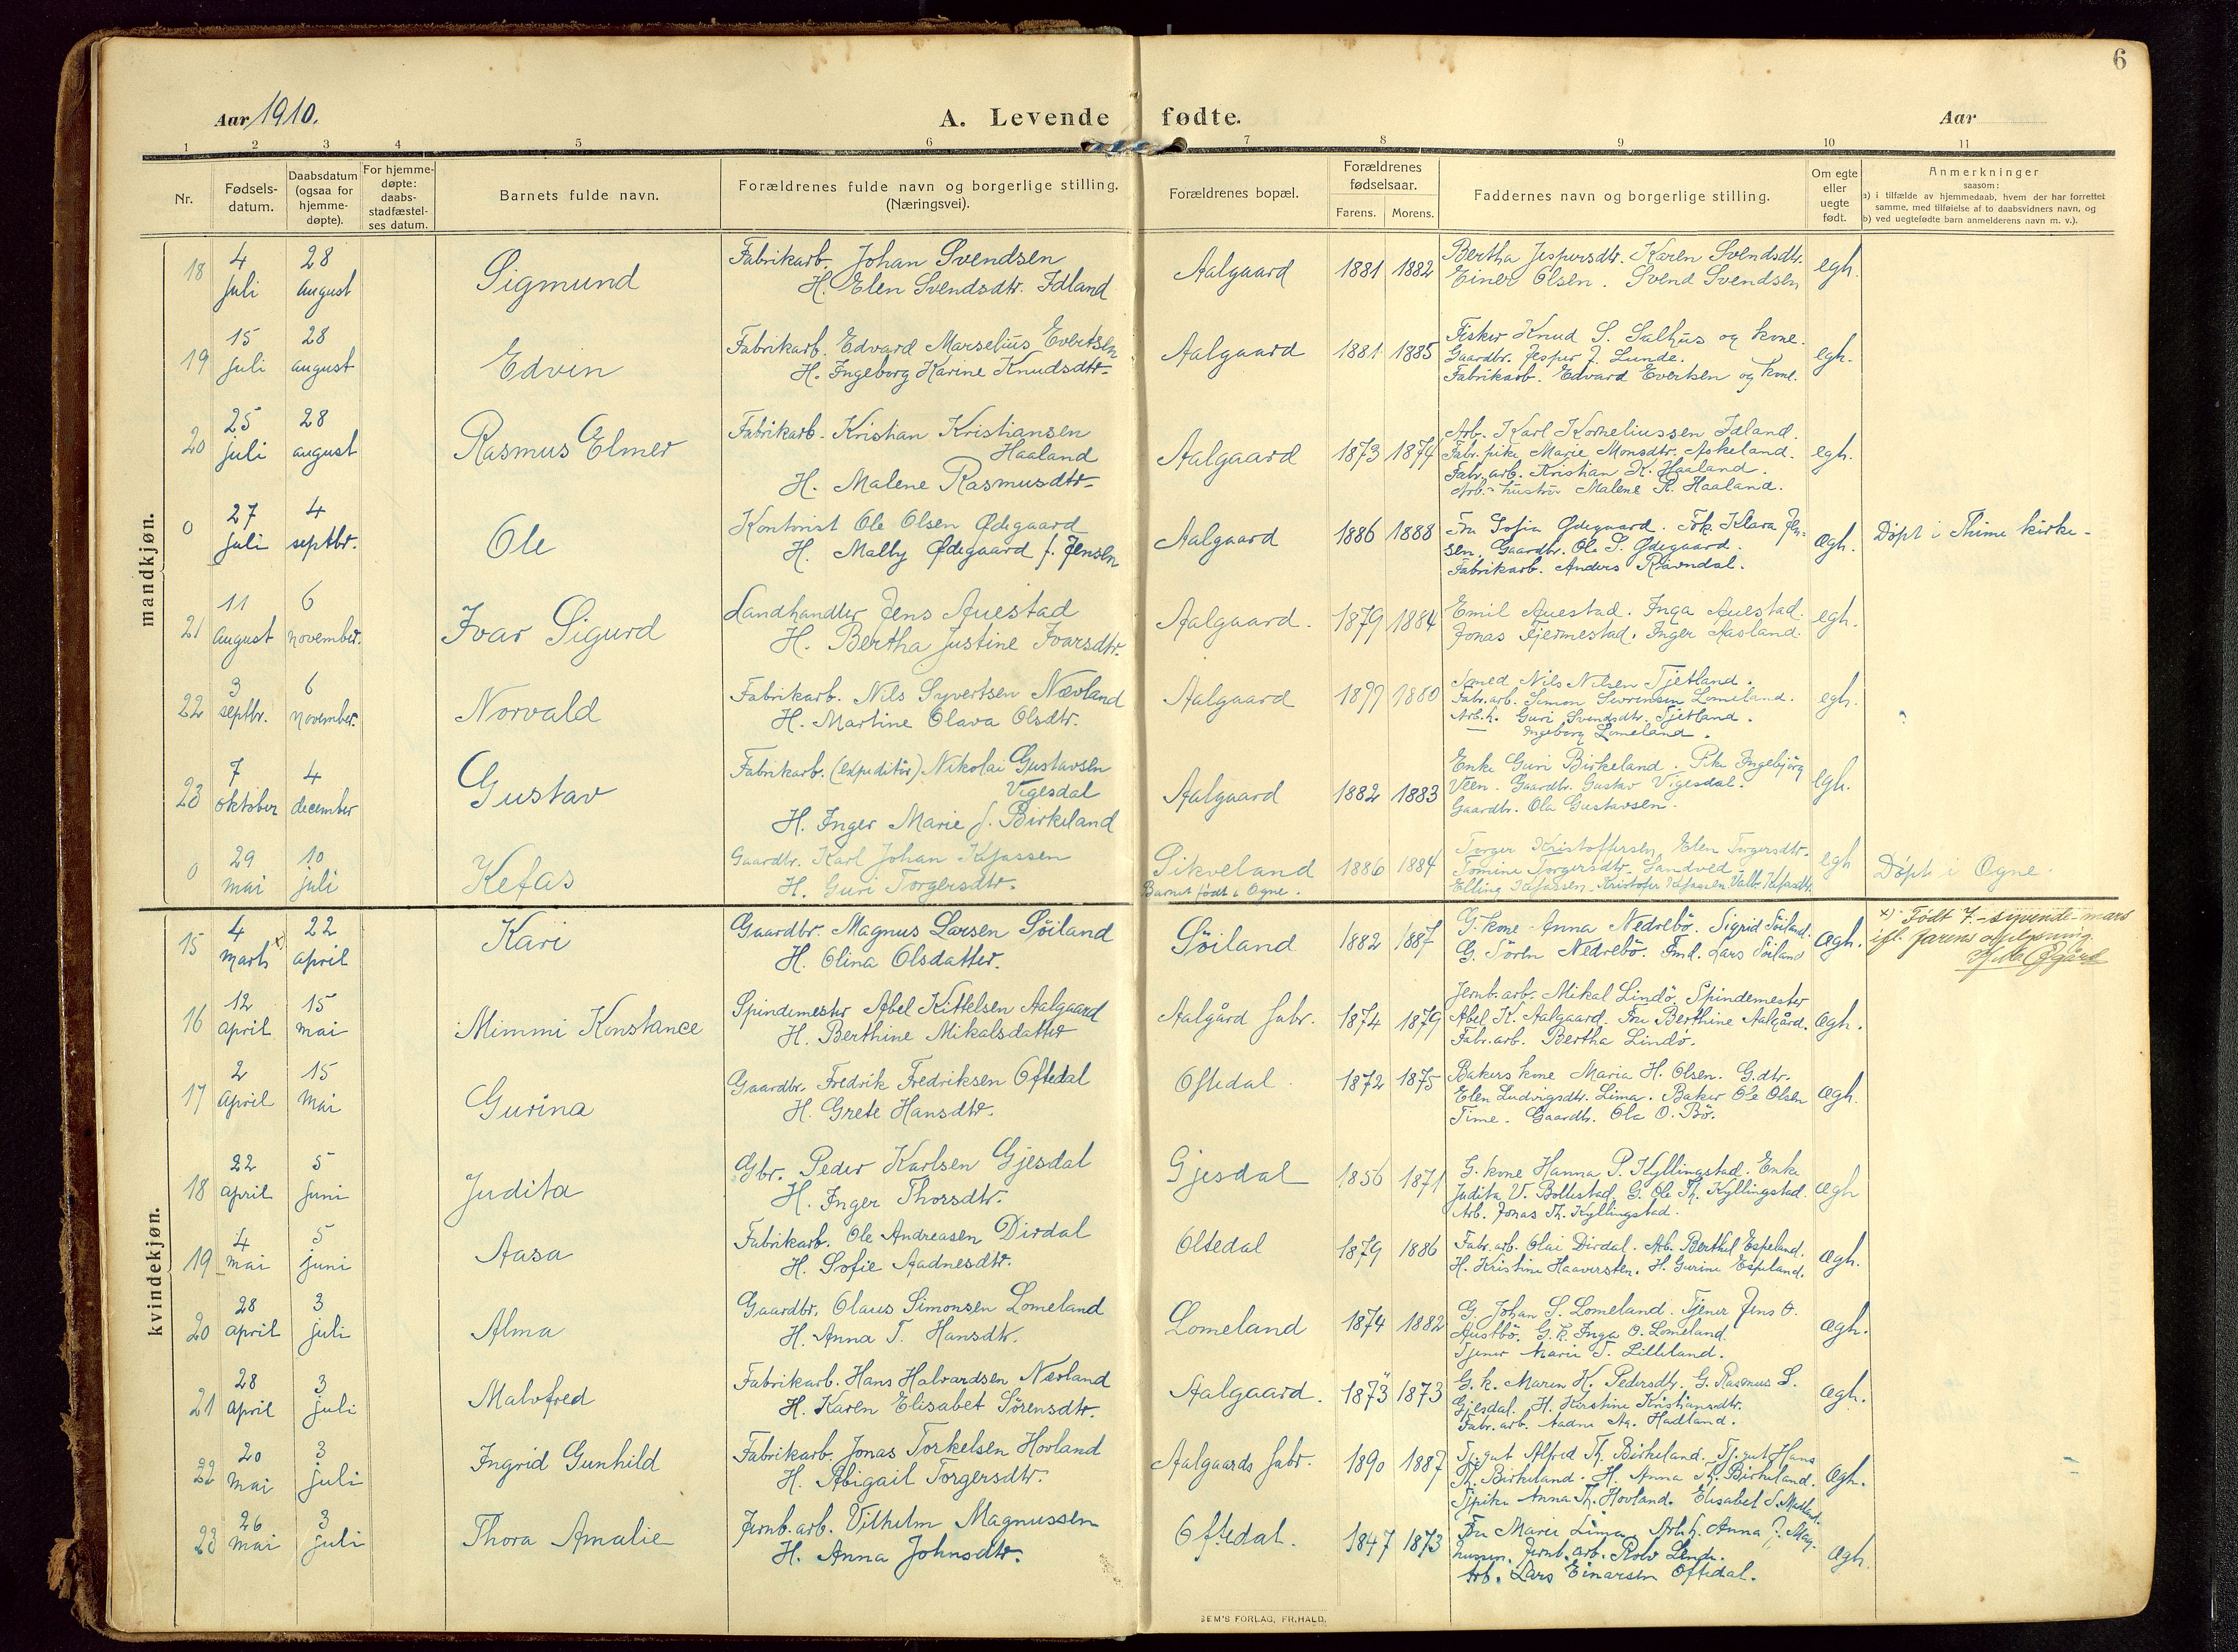 6
Aar 1910.
A. Levende fødte.
Aar
1 2 3 4 5 6 7 8 9 10 11
Nr.
Fødsels-
datum.
Daabsdatum
(ogsaa for
hjemme-
døpte).
For hjemme-
døpte:
daabs-
stadfæstel-
ses datum.
Barnets fulde navn.
Forældrenes fulde navn og borgerlige stilling.
(Næringsvei).
Forældrenes bopæl.
Forældrenes
fødselsaar.
Farens. Morens.
Faddernes navn og borgerlige stilling.
Om egte
eller
uegte
født.
Anmerkninger
saasom:
a) i tilfælde av hjemmedaab, hvem der har forrettet
samme, med tilføielse af to daabsvidners navn, og
b) ved uegtefødte barn anmelderens navn m. v.).
mandkjøn.
18 4 juli 28 august Sigmund
Fabrikarb. Johan Svendsen
H. Elen Svendsdtr. Idland
Aalgaard 1881 1882
Bertha Jespersdtr. Karen Svendsdtr.
Einer Olsen. Svend Svendsen
egh.
19 15 juli 28 august Edvin
Fabrikarb. Edvard Marselius Evertsen
H. Ingeborg Karine Knudsdtr.
Aalgaard 1881 1885
Fisker Knud S. Salhus og kone.
Gaardbr. Jesper J. Lunde.
Fabrikarb. Edvard Evertsen og kone.
egh.
20 25 juli 28 august Rasmus Elmer
Fabrikarb. Kristian Kristiansen
Haaland
H. Malene Rasmusdtr.
Aalgaard 1873 1874
Arb. Karl Korneliussen Idland.
Fabr. pike Marie Monsdtr. Askeland.
Fabr. arb. Kristian K. Haaland.
Arb. hustru Malene R. Haaland.
egh.
0 27 juli 4 septbr. Ole
Kontorist Ole Olsen Ødegaard
H. Mally Ødegaard f. Jensen
Aalgaard 1886 1888
Fru Sofia Ødegaard. Frk. Klara Jen-
sen. Gaardbr. Ole S. Ødegaard.
Fabrikarb. Anders Ravndal.
ægh.
Döpt i Thime kirke.
21 11 august 6 november. Ivar Sigurd
Landhandler Jens Auestad
H. Bertha Justine Ivarsdtr.
Aalgaard. 1879 1884
Emil Auestad. Inga Auestad.
Jonas Fjermestad. Inger Aasland.
egh.
22 3 septbr. 6 november. Norvald
Fabrikarb. Nils Syvertsen Nævland
H. Martine Olava Olsdtr.
Aalgaard 1877 1880
Smed Nils Nilsen Tjetland.
Fabr. arb. Simon Severinsen Lomeland.
Arb. h. Guri Svendsdtr. Tjetland.
— Ingeborg Lomeland.
egh.
23 7 oktober 4 december Gustav
Fabrikarb. (expeditör) Nikolai Gustavsen
Vigesdal
H. Inger Marie f. Birkeland
Aalgaard 1882 1883
Enke Guri Birkeland. Pike Ingebjörg
Veen. Gaardbr. Gustav Vigesdal.
Gaardbr. Ola Gustavsen.
egh.
0 29 mai 10 juli Kefas
Gaardbr. Karl Johan Kefassen
H. Guri Torgersdtr.
Sikveland
Barnet født i Ogne.
1886 1884
Torger Kristoffersen, Elen Torgersdtr.
Tomine Torgersdtr. Sandved
Elling Kefassen. Kristofer Kefassen Valb. Kefasdtr.
egh
Döpt i Ogne.
kvindekjøn.
15 4 marts x) 22 april Kari
Gaardbr. Magnus Larsen Söiland
H. Olina Olsdatter.
Söiland 1882 1887
G. kone Anna Nedrebö. Sigrid Söiland.
G. Sören Nedrebö. Lars Söiland
ægh.
x) Født 7. - syvende - mars
ifl. farens oplysning
16 12 april 15 mai Mimmi Konstance
Spindemester Abel Kittelsen Aalgaard
H. Berthine Mikalsdatter
Aalgård fabr. 1874 1879
Jernb. arb. Mikal Lindö. Spindemester
Abel K. Aalgaard. Fru Berthine Aalgård.
Fabr. arb. Bertha Lindö.
ægh.
17 2 april 15 mai Gurina
Gaardbr. Fredrik Fredriksen Oftedal
H. Grete Hansdtr.
Oftedal. 1872 1875
Bakers kone Maria H. Olsen. G.dtr.
Elen Ludvigsdtr. Lima. Baker Ole Olsen
Time. Gaardbr. Ole O. Bö.
ægh.
18 22 april 5 juni Judita
Gbr. Peder Karlsen Gjesdal
H. Inger Thorsdtr.
Gjesdal 1856 1871
G. kone Hanna P. Kyllingstad. Enke
Judita V. Bollestad. G. Ole Th. Kyllingstad.
Arb. Jonas Th. Kyllingstad.
ægh
19 4 mai 5 juni Aasa
Fabrikarb. Ole Andreasen Dirdal
H. Sofie Aadnesdtr.
Oltedal 1879 1886
Fabr. arb. Olai Dirdal. Arb. Berthel Espeland.
H. Kristine Haaversten. H. Gurine Espeland.
ægh.
20 28 april 3 juli Alma
Gaardbr. Olaus Simonsen Lomeland
H. Anna T. Hansdtr.
Lomeland 1874 1882
G. Johan S. Lomeland. Tjener Jens O.
Austbö. G. k. Inga O. Lomeland.
Tjener Marie T. Lilleland.
ægh.
21 28 april 3 juli Malvfred
Fabrikarb. Hans Halvardsen Nævland
H. Karen Elisabet Sörensdtr.
Aalgaard. 1873 1873
G. k. Maren K. Pedersdtr. G. Rasmus S.
Gjesdal. H. Kirstine Kristiansdtr.
Fabr. arb. Aadne Aa. Hadland.
ægh.
22 20 mai 3 juli Ingrid Gunhild
Fabrikarb. Jonas Torkelsen Hovland
H. Abigail Torgersdtr.
Aalgaards fabr. 1890 1887
Tj. gut Alfred Th. Birkeland. Tj. gut Hans
Th. Birkeland. H. Anna Th. Birkeland.
Tjpike Anna Th. Hovland. Elisabet S. Madland.
ægh.
23 26 mai 3 juli Thora Amalie
Jernb. arb. Vilhelm Magnussen
H. Anna Johnsdtr.
Oftedal. 1847 1873
Fru Marie Lima. Arb. h. Anna J. Mag-
nussen. Jernb. arb. Rolv Lende.
Arb. Lars Einarsen Oftedal.
ægh.
SEM'S FORLAG, FR.HALD.